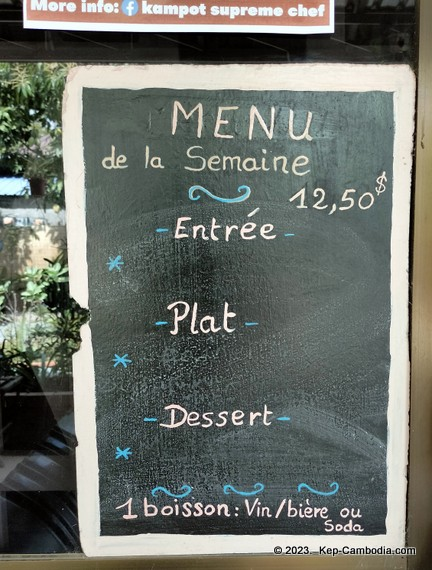 More info: kampot supreme chef
MENU
de la Semaine
12,50$
- Entrée -
*
- Plat -
*
- Dessert -
*
1 boisson: Vin/bière ou
Soda
© 2023. Kep-Cambodia.com